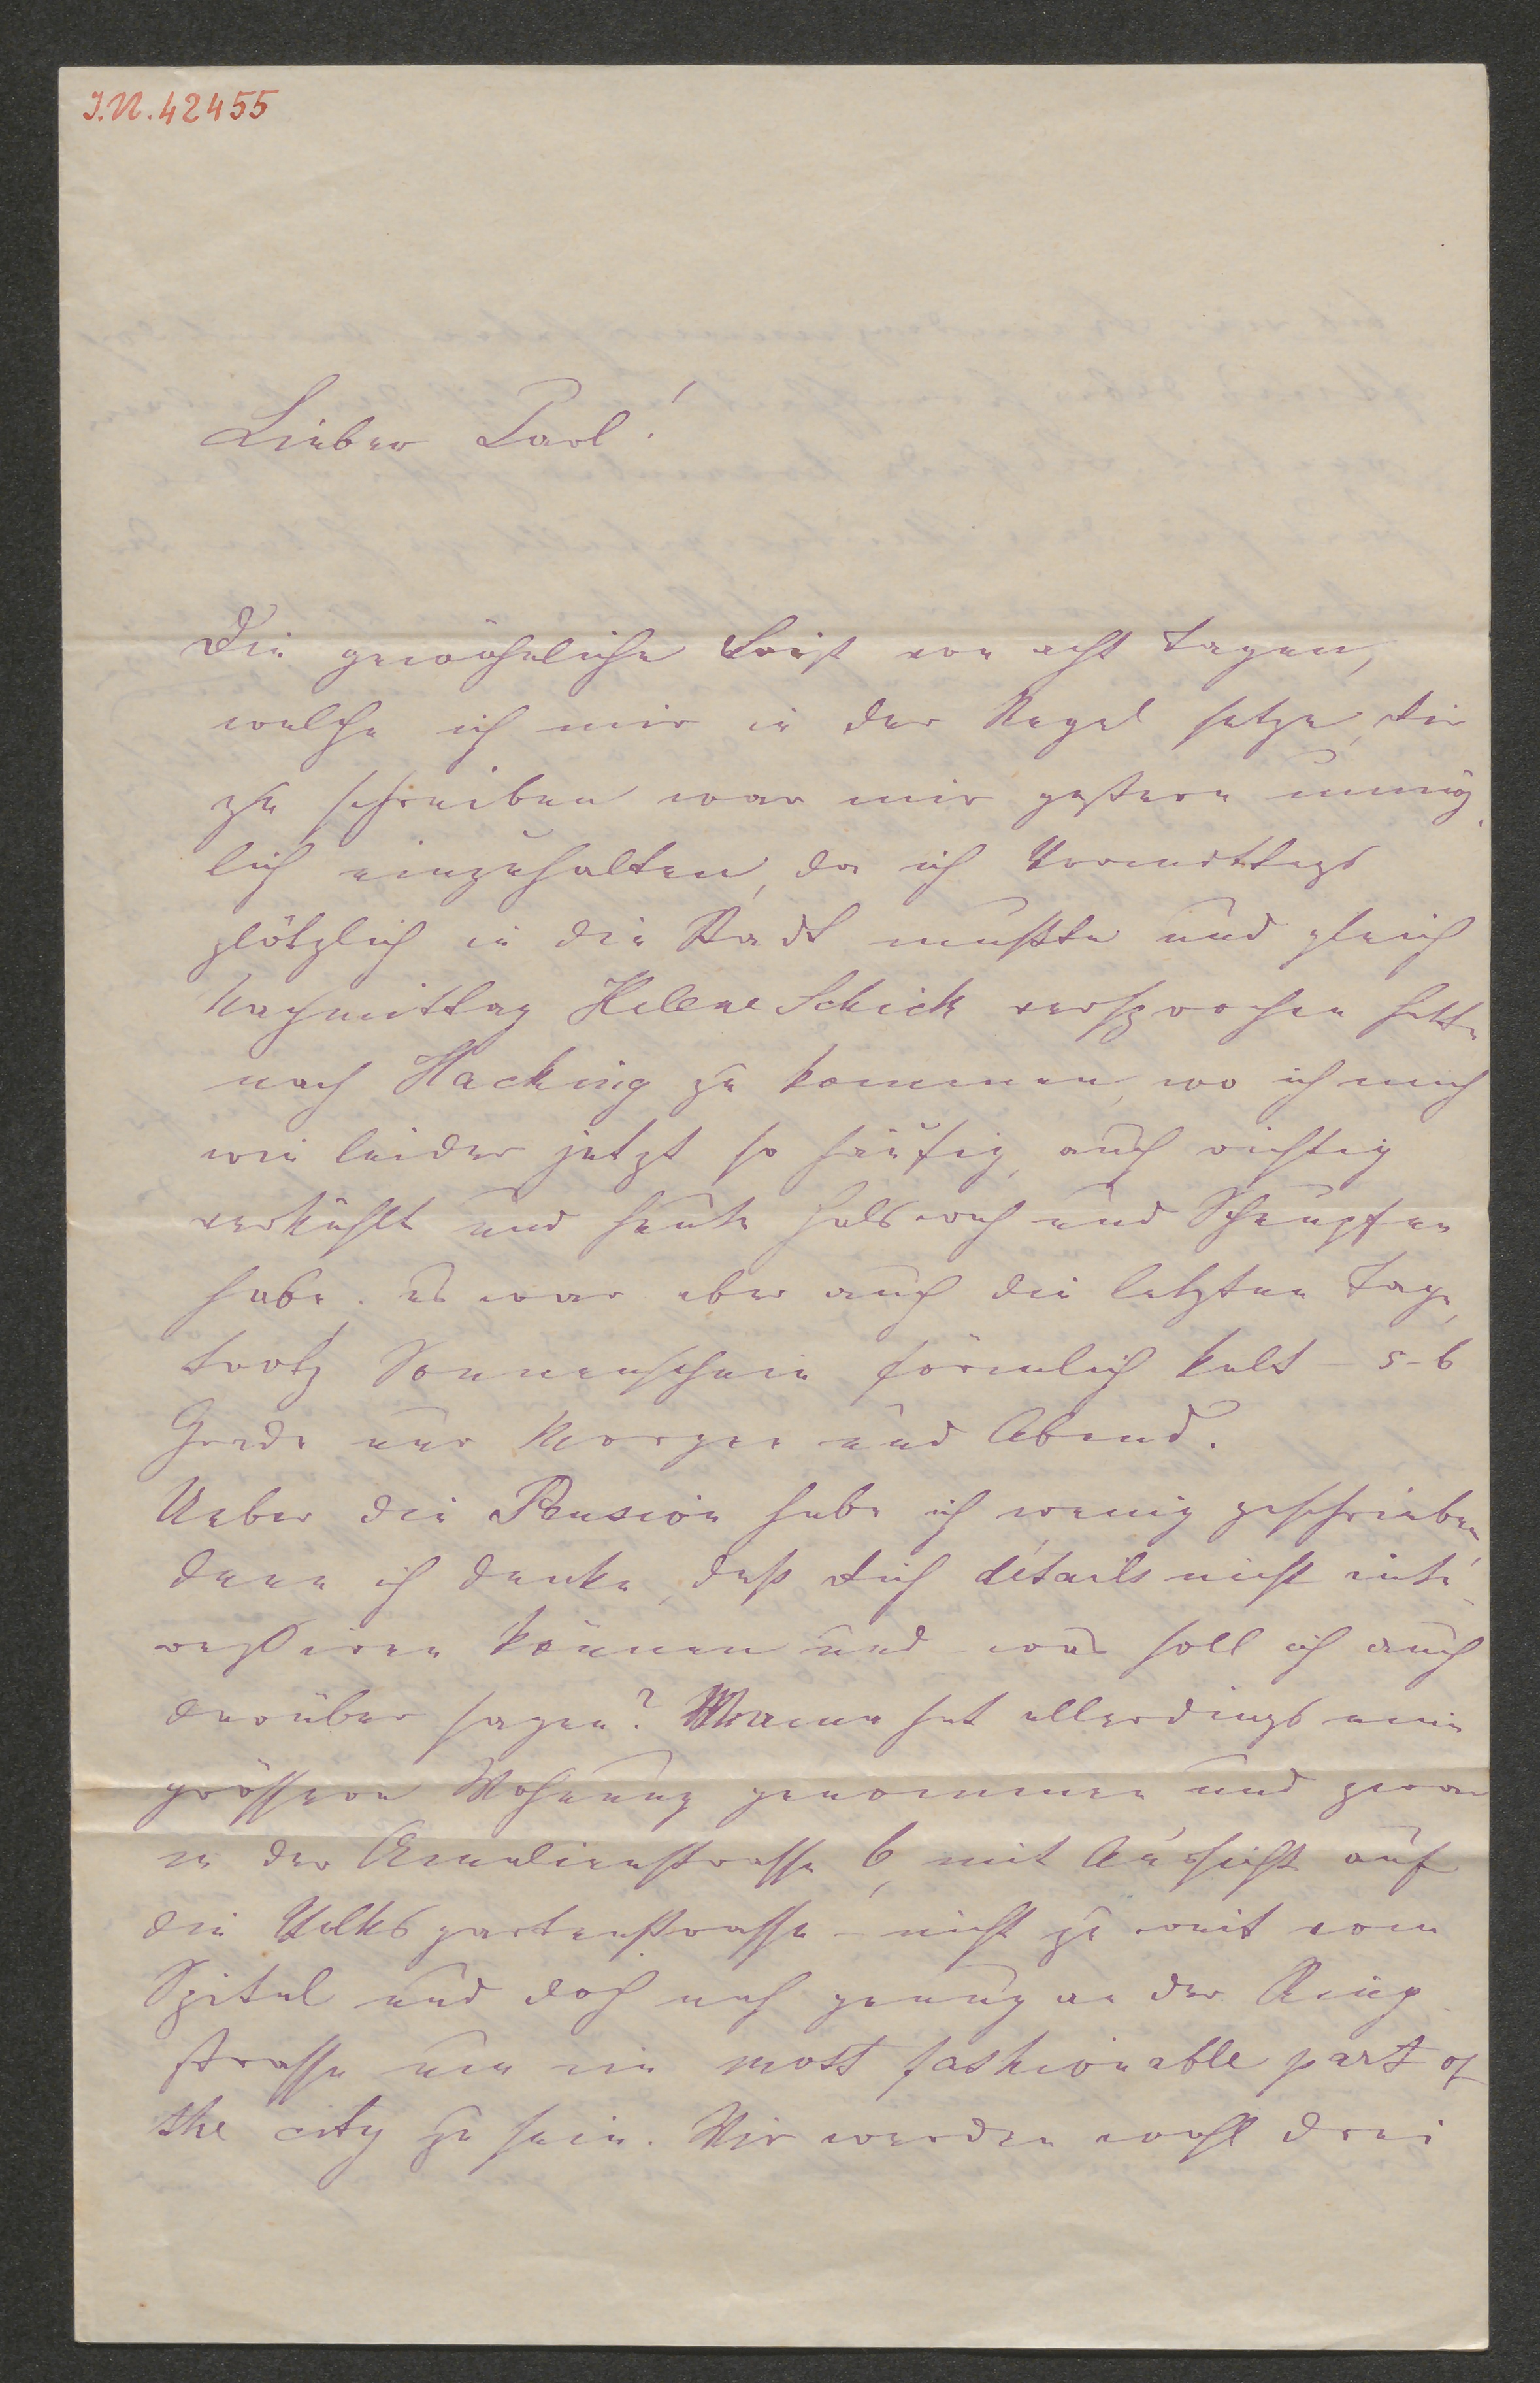 J.N. 42455
Lieber Carl!
Die gewöhnliche Frist von acht Tagen,
welche ich mir in der Regel setze, dir
zu schreiben war mir gestern unmög-
lich einzuhalten, da ich Vormittags
plötzlich in die Stadt mußte und gleich
Nachmittag Helene Schick versprochen hatte
nach Hacking zu kommen, wo ich mich
wie leider jetzt so häufig, auch richtig
verkühlt und heute Halsweh und Schnupfen
habe. es war aber auch die letzten Tage,
trotz Sonnenschein förmlich kalt – 5-6
Grade nur Morgen und Abend.
Ueber die Pension habe ich wenig geschrieben,
denn ich denke, daß dich détails nicht inte-
ressiren können und was soll ich auch
darüber sagen? Mama hat allerdings eine
grössere Wohnung genommen und zwar
in der Amalienstrasse 6, mit Aussicht auf
die Volksgartenstrasse – nicht zu weit vom
Spital und doch nah genug an der Ring-
strasse um in most fashionable part of
the city zu sein. Wir werden wohl drei